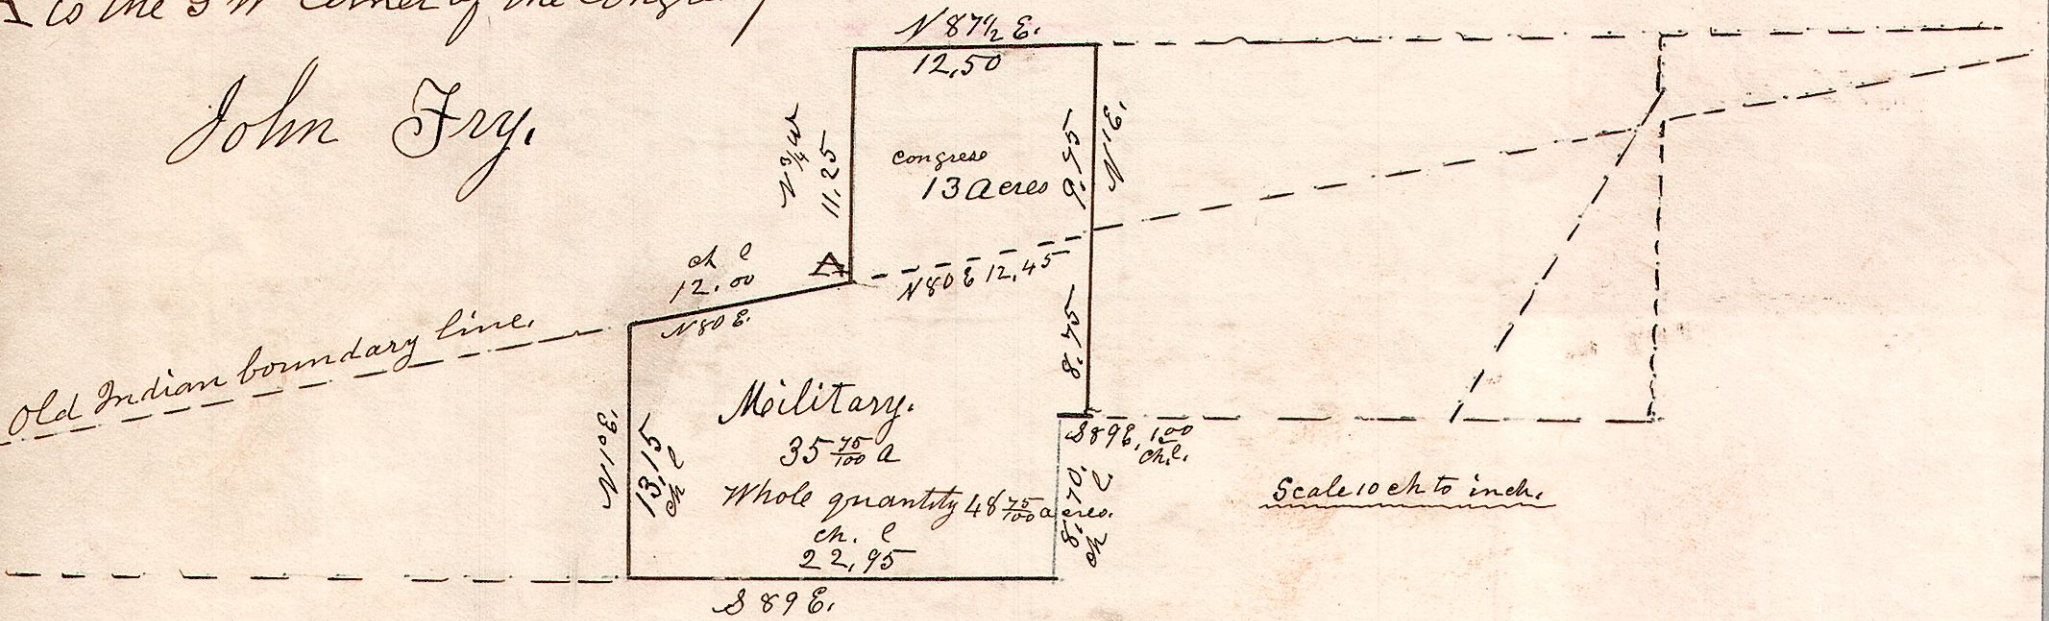 is the S W corner of the Congress
John Fry.
N 87 1/2 E.
12,50
N 3/4 W
11,25
congress
13 acres
9,75
N 1 E.
ch l
12,00
N 80 E.
N 80 E 12,45
8,75
Old Indian boundary line.
Military.
35 75/100 a
Whole quantity 48 75/100 acres.
ch. l
22,95
N 1 E.
13,15
ch l
S 89 E, 1,00
ch. l.
8,70,
ch l
S 89 E.
Scale 10 ch to inch.